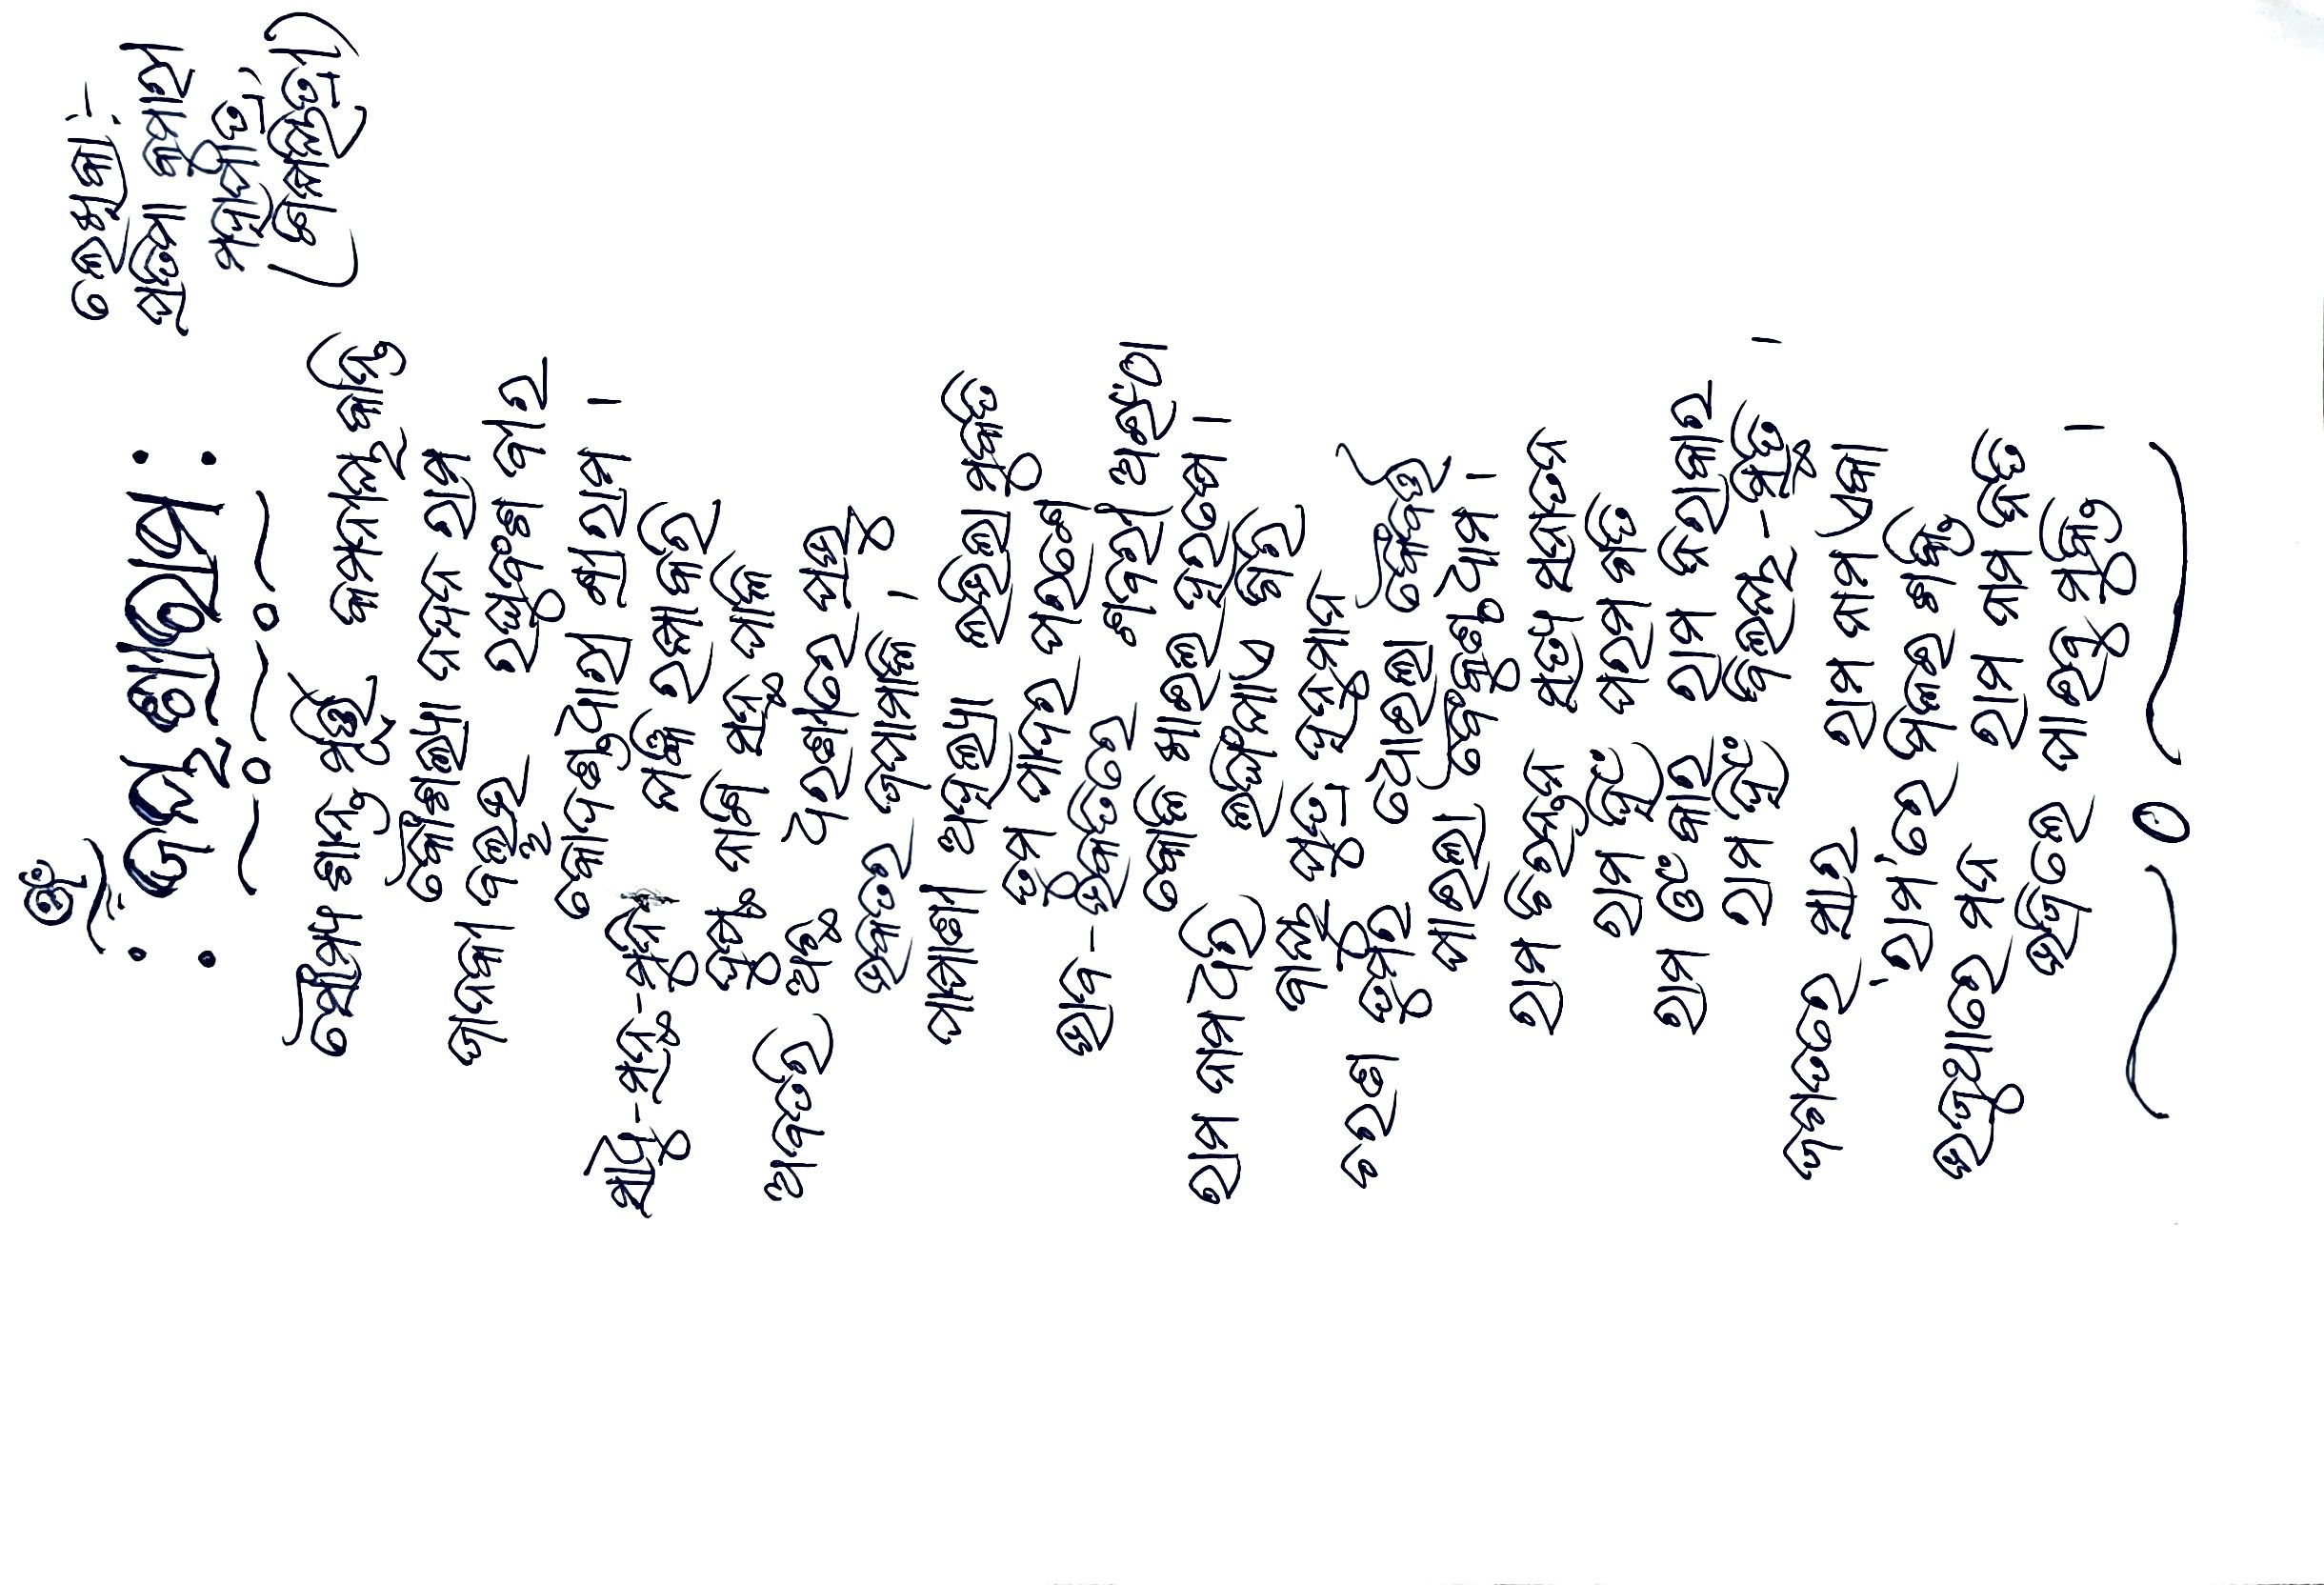 ଓଁ
: ଜୟ ଶ୍ରୀରାମ :
ଲେଖିକା :-
ପ୍ରତିମା କୁମାରୀ
ମହାପାତ୍ର,
(ଶିକ୍ଷୟିତ୍ରୀ)
ସୌମ୍ୟ ଶାନ୍ତ ମୂର୍ତ୍ତି କମନୀୟ କାନ୍ତି
କୌଶଲ୍ୟା ନନ୍ଦନ ରାମ
ଜାନକୀ ବଲ୍ଲଭ ରଘୁବଂଶ ବୀର
କୋଦଣ୍ଡଧାରୀ ଶ୍ରୀରାମ ।
ସାଧୁ-ସନ୍ଥ-ମୁନି ଯଜ୍ଞ ରକ୍ଷା କରି
ଦୁଷ୍ଟ ନାଶି ସନ୍ଥ ପାଳି
ଅବତରି ଅଛ ଧରଣୀରେ ପ୍ରଭୁ
ଭକତର ଜପାମାଳି ।
ପାଷାଣୀ ଅହଲ୍ୟା ଲଭିଲା ମୁକତି
ତୁମ ପାଦର ପରଶେ
ଭାବ-ଭକତିରେ ଶବରୀ ଅଇଁଠା
କୋଳି ଖାଇଲ ହରଷେ ।
ରାମ ନାମ ଧରି ଲଙ୍ଘିଯାଏ ଗିରି
ବାୟୁ ପୁତ୍ର ହନୁମାନ
ଚରଣ ତୁମର ଧୋଇଲା କୈବର୍ତ୍ତ
ପାଇଲା ବୈକୁଣ୍ଠ ଧାମ ।
ରାମ ଚିରନ୍ତନ ସତ୍ୟ ସନାତନ
ରାମ ହିଁ ପରମ ଗତି
ରାମ ଓଁ କାର ରାମ ନିରାକାର
ରାମ ହିଁ ବିଲୟ-ସ୍ଥିତି ।
ଜଗତରେ ସାର ରାମ ନାମ ଏକା
'ରାମ'ରେ ମିଳଇ ଶକ୍ତି
ଭଜୁଥାରେ ମନ ରାମ ନାମ ନିତି
ଭଜିଲେ ପାଇବୁ ମୁକ୍ତି ।